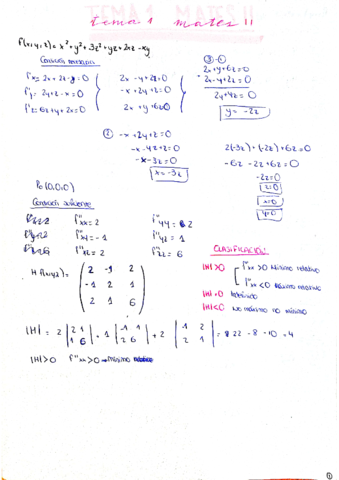 TEMA 1 MATES II
tema 1 mates II
f(x,y,z) = x² + y² + 3z² + yz + 2xz - xy
Condición necesaria
f'x = 2x + 2z - y = 0
f'y = 2y + z - x = 0
f'z = 6z + y + 2x = 0
2x - y + 2z = 0
-x + 2y + z = 0
2x + y + 6z = 0
③-①
2x + y + 6z = 0
2x - y + 2z = 0
2y + 4z = 0
y = -2z
② -x + 2y + z = 0
-x - 4z + z = 0
-x - 3z = 0
x = -3z
2(-3z) + (-2z) + 6z = 0
-6z - 2z + 6z = 0
-2z = 0
z = 0
x = 0
y = 0
P0 (0,0,0)
Condición suficiente
f''xx = 2
f''xy = -1
f''xz = 2
f''yy = 2
f''yz = 1
f''zz = 6
H f(x,y,z) =
2 -1 2
-1 2 1
2 1 6
CLASIFICACIÓN:
|H| > 0
f''xx > 0 Mínimo relativo
f''xx < 0 Máximo relativo
|H| = 0
|H| < 0 no máximo no mínimo
|H| = 2 |2 1 / 1 6| + 1 |-1 1 / 2 6| + 2 |-1 2 / 2 1| = 22 - 8 - 10 = 4
|H| > 0 f''xx > 0 → Mínimo
①